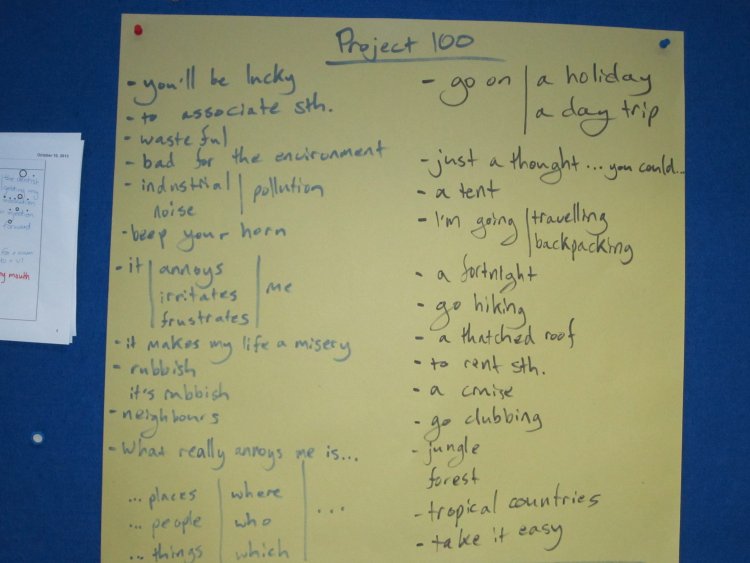 Project 100
- you'll be lucky
- to associate sth.
- wasteful
- bad for the environment
- industrial | pollution
noise
- beep your horn
- it | annoys | me
irritates
frustrates
- it makes my life a misery
- rubbish
it's rubbish
- neighbours
- What really annoys me is...
... places | where | ...
... people | who
... things | which
- go on | a holiday
a day trip
- just a thought ... you could...
- a tent
- I'm going | travelling
backpacking
- a fortnight
- go hiking
- a thatched roof
- to rent sth.
- a cruise
- go clubbing
- jungle
forest
- tropical countries
- take it easy
October 10, 2013
forward
my mouth